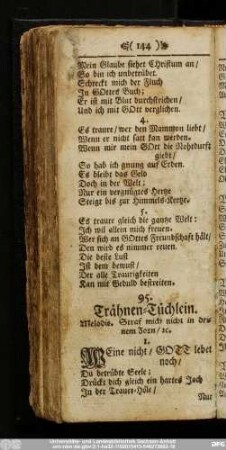 ( 144 )
Mein Glaube siehet Christum an/
So bin ich unbetrübet.
Schreckt mich der Fluch
In GOttes Buch;
Er ist mit Blut durchstrichen/
Und ich mit GOtt verglichen.
4.
Es traure/ wer den Mammon liebt/
Wenn er nicht satt kan werden.
Wenn mir mein GOtt die Nohtdurft
giebt/
So hab ich gnung auf Erden.
Es bleibt das Geld
Doch in der Welt;
Nur ein vergnügtes Hertze
Steigt bis zur Himmels-Kertze.
5.
Es traure gleich die gantze Welt:
Ich wil allein mich freuen.
Wer sich an GOttes Freundschaft hält/
Den wird es nimmer reuen.
Die beste Lust
Ist dem bewust/
Der alle Traurigkeiten
Kan mit Geduld bestreiten.
95.
Trähnen-Tüchlein.
Melodie. Straf mich nicht in dei-
nem Zorn/ ec.
1.
WEine nicht/ GOTT lebet
noch/
Du betrübte Seele:
Drückt dich gleich ein hartes Joch
In der Trauer-Höle/
Nur
Universitäts- und Landesbibliothek Sachsen-Anhalt